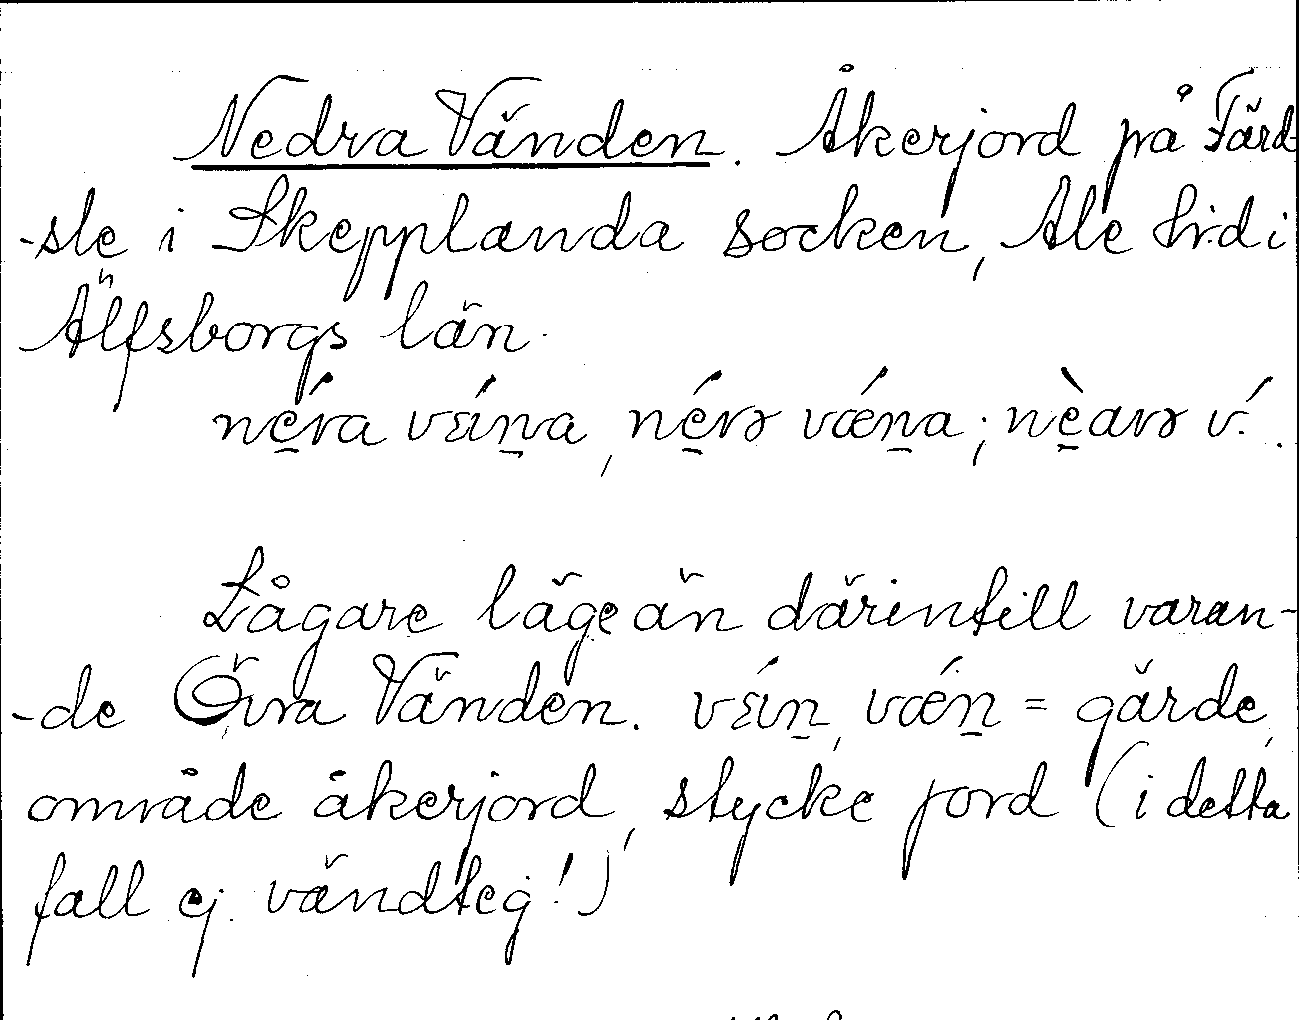 Nedra Vänden. Åkerjord på Färd-
-sle i Skepplanda socken, Ale hrd i
Älfsborgs län.
néra vɛína, nérə vǽna; nèarə v́.
Lägare läge än därintill varan-
-de Övra Vänden. vɛín, vǽn = gärde,
område åkerjord, stycke jord (i detta
fall ej vändteg!)